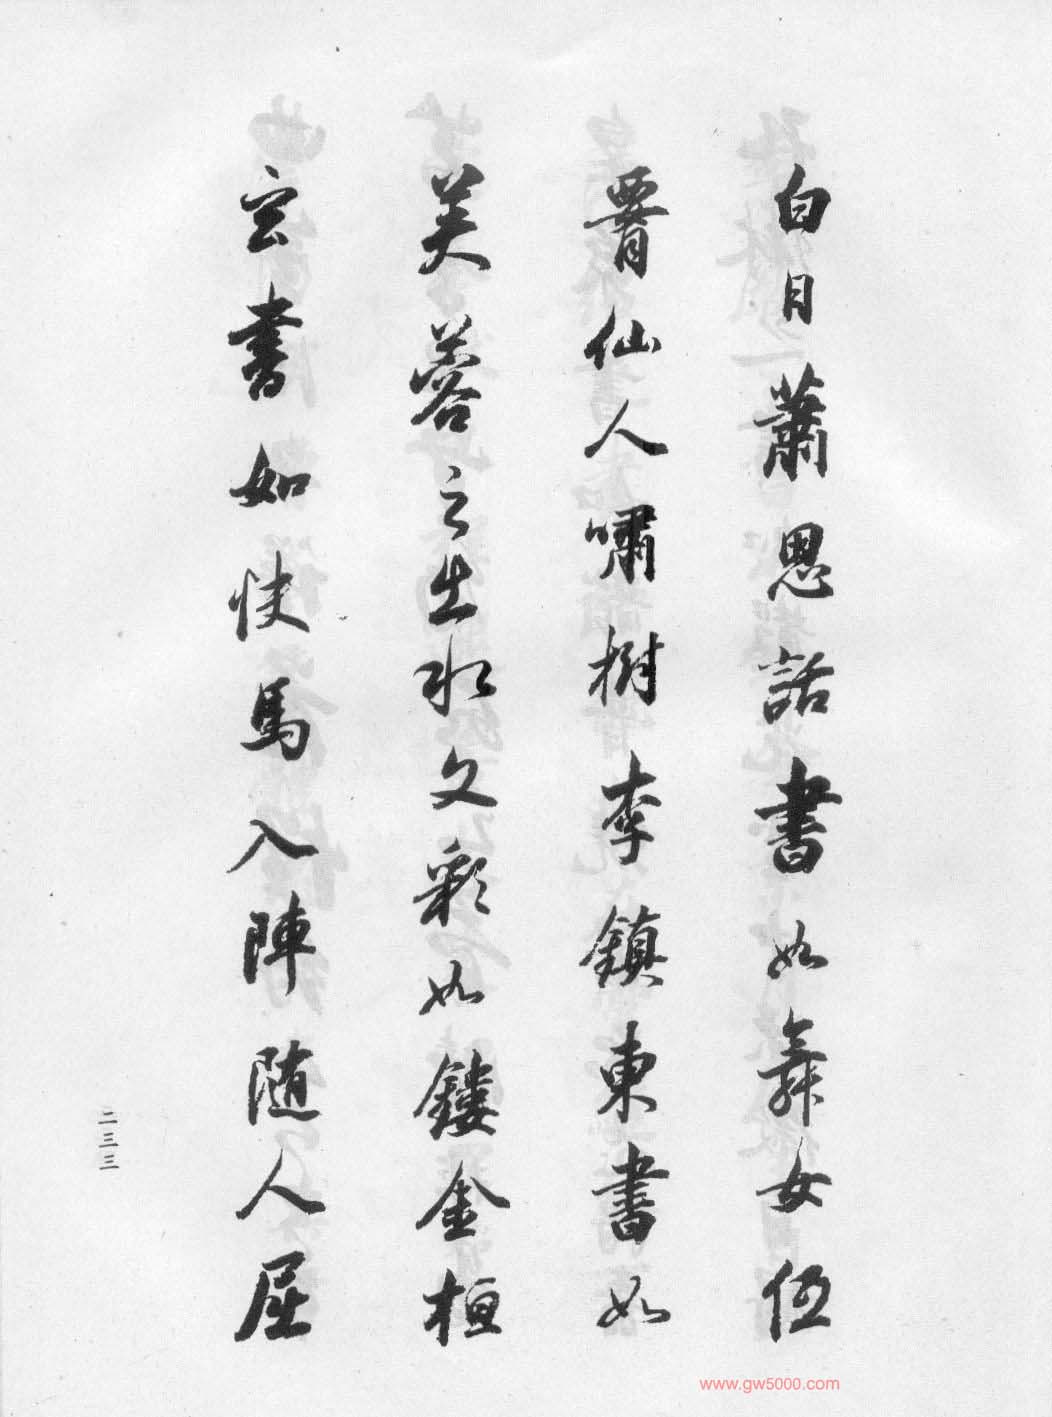 白日蕭思話書如舞女低
腰仙人嘯樹李鎮東書如
芙蓉之出水文彩如鏤金桓
玄書如快馬入陣随人屈
二三三
www.gw5000.com